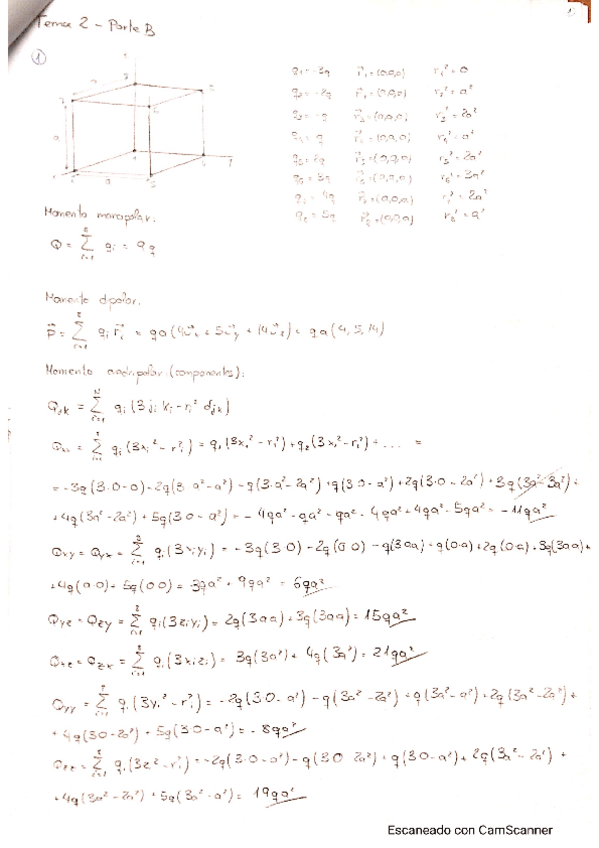 Tema 2 - Parte B
①
q₁ = -3q r⃗₁ = (0,0,0) r₁² = 0
r₂² = a²
r₃² = 2a²
r₄² = a²
r₅² = 2a²
q₆ = 3q r₆² = 3a²
q₇ = 4q r₇² = 2a²
q₈ = 5q r₈² = a²
Momento monopolar:
Q = Σ qᵢ = 9q
Momento dipolar:
p⃗ = Σ qᵢ r⃗ᵢ = qa(4u⃗ₓ + 5u⃗ᵧ + 14u⃗_z) = qa(4, 5, 14)
Momento cuadripolar (componentes):
Q_jk = Σ qᵢ(3jᵢ kᵢ - rᵢ² δ_jk)
Qₓₓ = Σ qᵢ(3xᵢ² - rᵢ²) = q₁(3x₁² - r₁²) + q₂(3x₂² - r₂²) + ... =
= -3q(3·0-0) - 2q(3·a²-a²) - q(3·a²-2a²) + q(3·0-a²) + 2q(3·0-2a²) + 3q(3a²-3a²) +
+ 4q(3a²-2a²) + 5q(3·0-a²) = - 4qa² - qa² - qa² - 4qa² + 4qa² - 5qa² = -11qa²
Qxy = Qyx = Σ qᵢ(3xᵢyᵢ) = -3q(3·0) - 2q(0·0) - q(3·0·a) + q(0·a) + 2q(0·a) + 3q(3aa) +
+ 4q(a·0) + 5q(0·0) = 9qa² = 6qa²
Qyz = Qzy = Σ qᵢ(3zᵢyᵢ) = 2q(3aa) + 3q(3aa) = 15qa²
Qxz = Qzx = Σ qᵢ(3xᵢzᵢ) = 3q(3a²) + 4q(3a²) = 21qa²
Qyy = Σ qᵢ(3yᵢ² - rᵢ²) = -2q(3·0-a²) - q(3a²-2a²) + q(3a²-a²) + 2q(3a²-2a²) +
+ 4q(3·0-2a²) + 5q(3·0-a²) = -8qa²
Qzz = Σ qᵢ(3z² - rᵢ²) = -2q(3·0-a²) - q(3·0-2a²) + q(3·0-a²) + 2q(3a²-2a²) +
+ 4q(3a²-2a²) + 5q(3a²-a²) = 19qa²
Escaneado con CamScanner